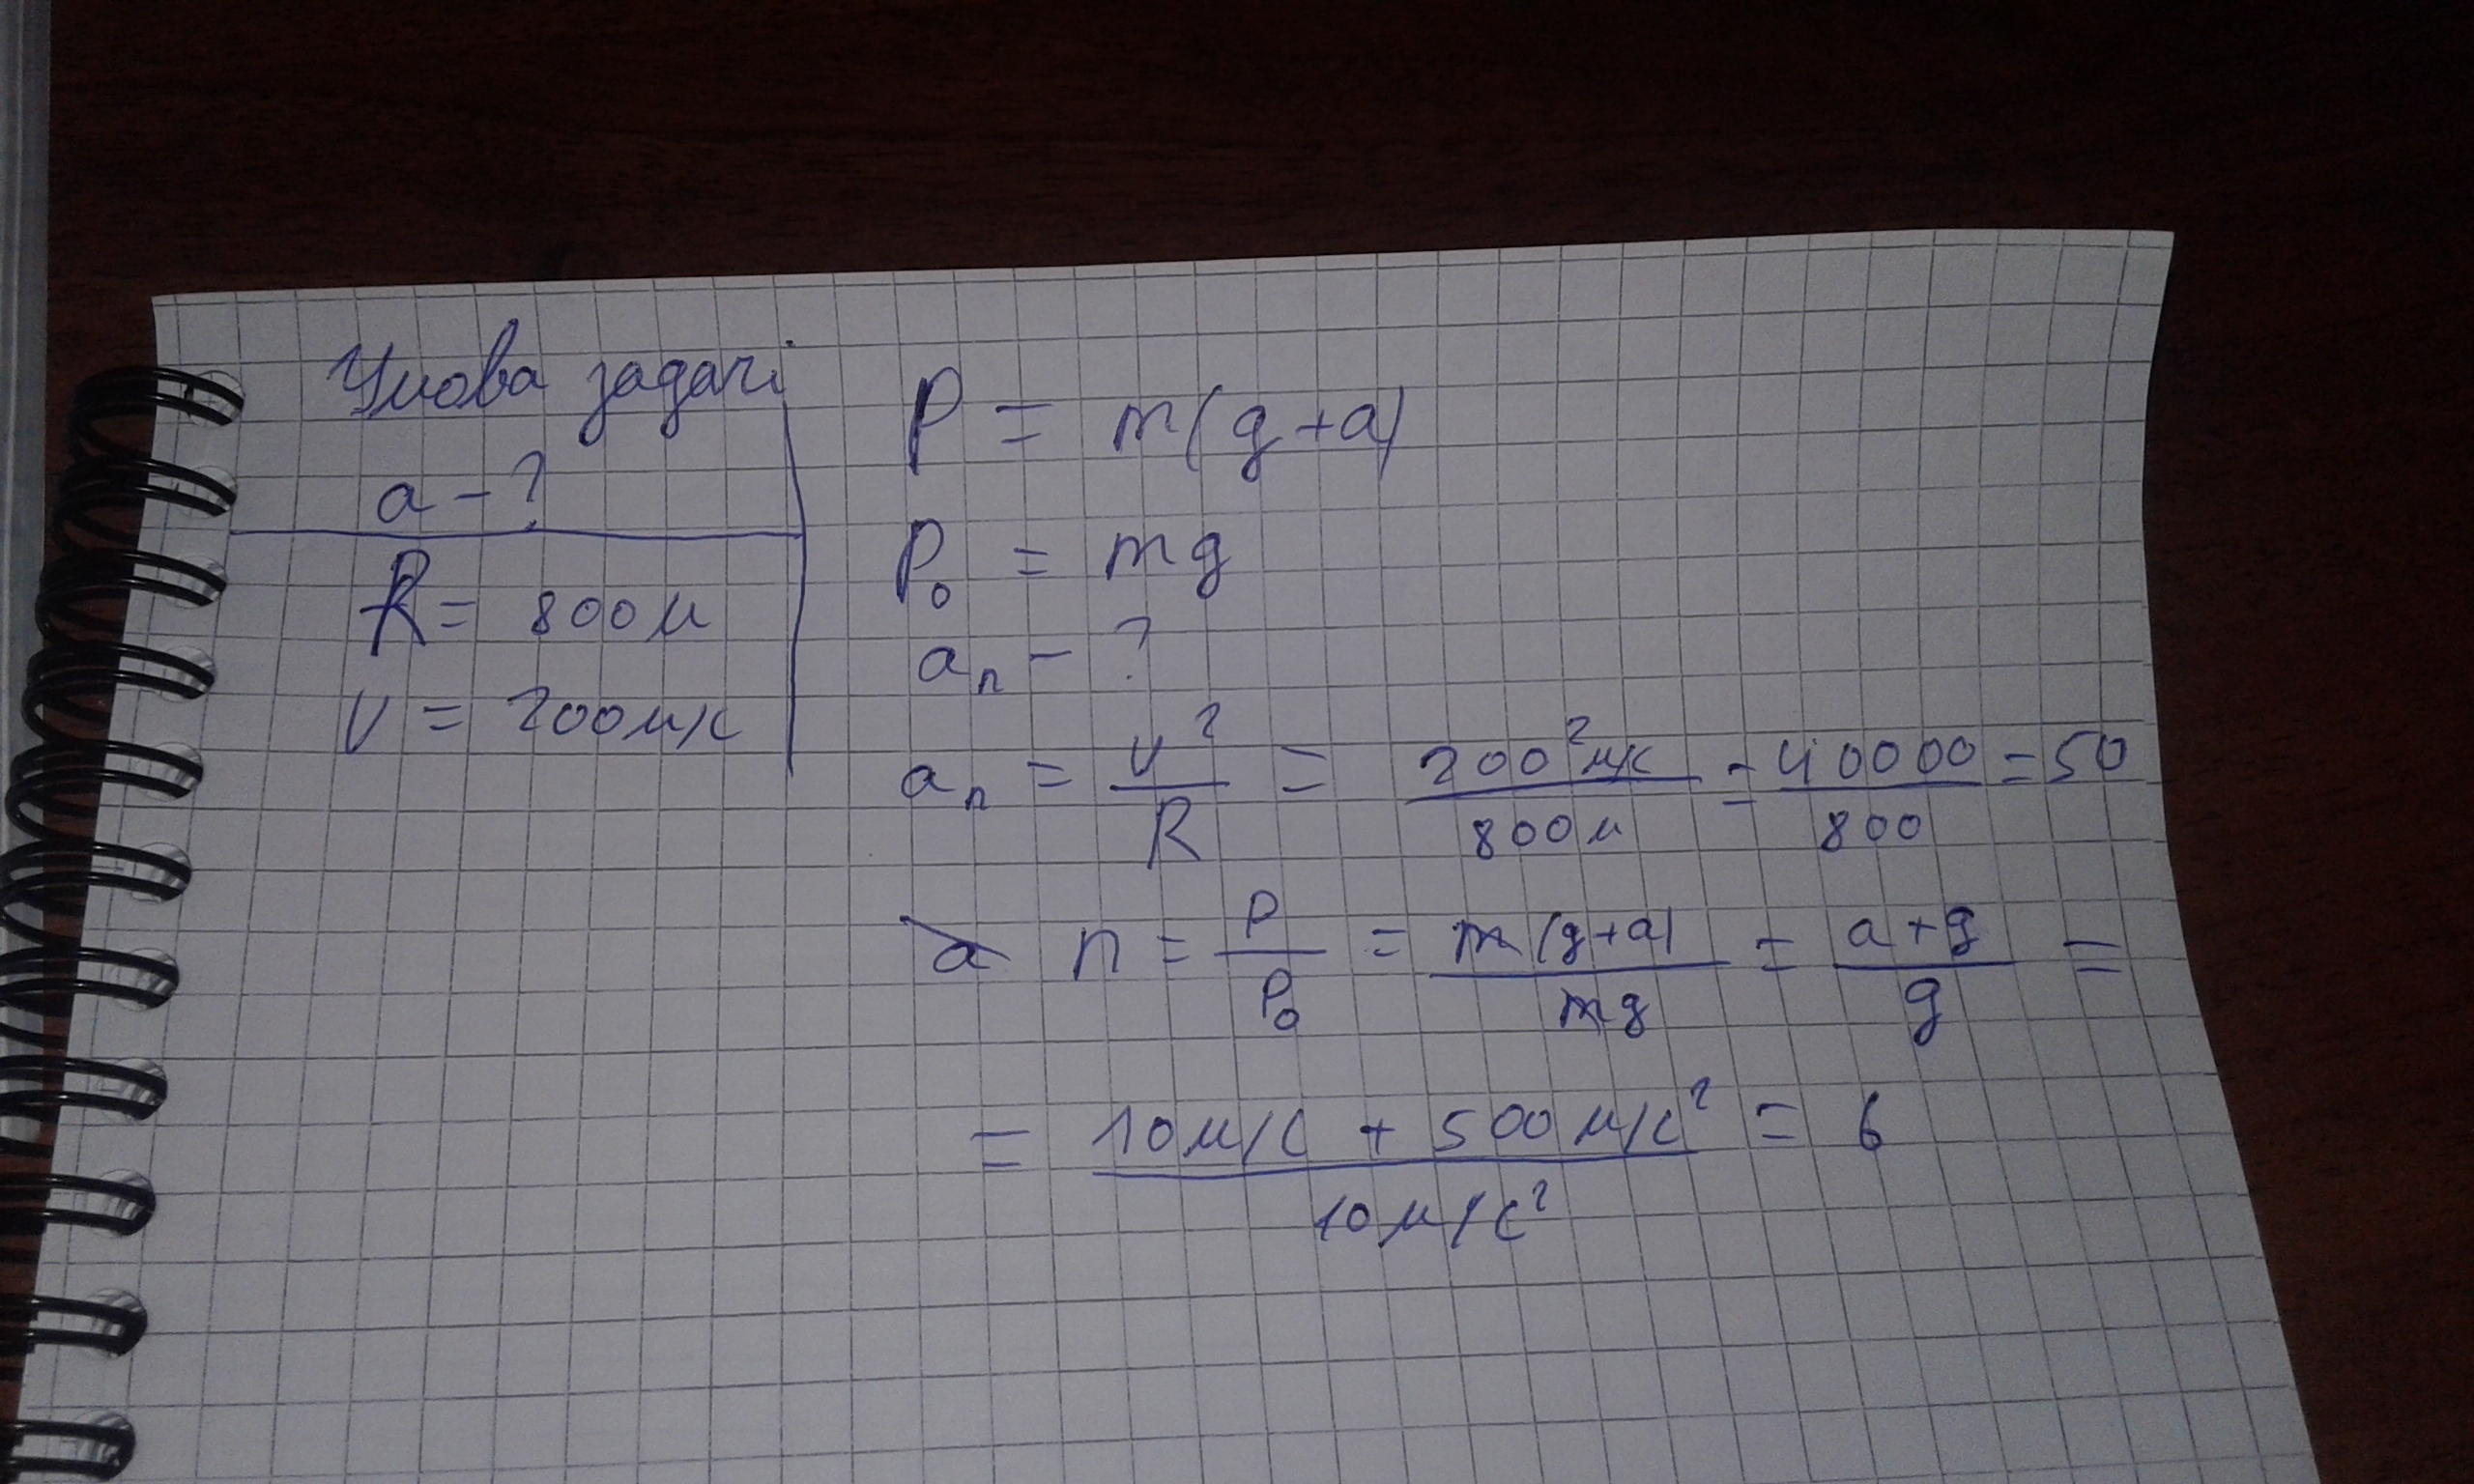 Умова задачі
a - ?
R = 800м
v = 200м/с
P = m(g+a)
P₀ = mg
aₙ - ?
aₙ = v²/R = 200²м/с/800м = 40000/800 = 50
a n = P/P₀ = m(g+a)/mg = a+g/g =
= 10м/с + 500м/с²/10м/с² = 6